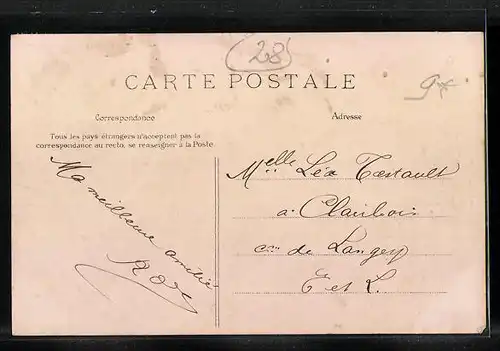 28
CARTE POSTALE
Correspondance
Adresse
Tous les pays étrangers n'acceptent pas la
correspondance au recto, se renseigner à la Poste
Ma meilleure amitié
Melle Léa
a Clairbois
cne de Langey
E et L.